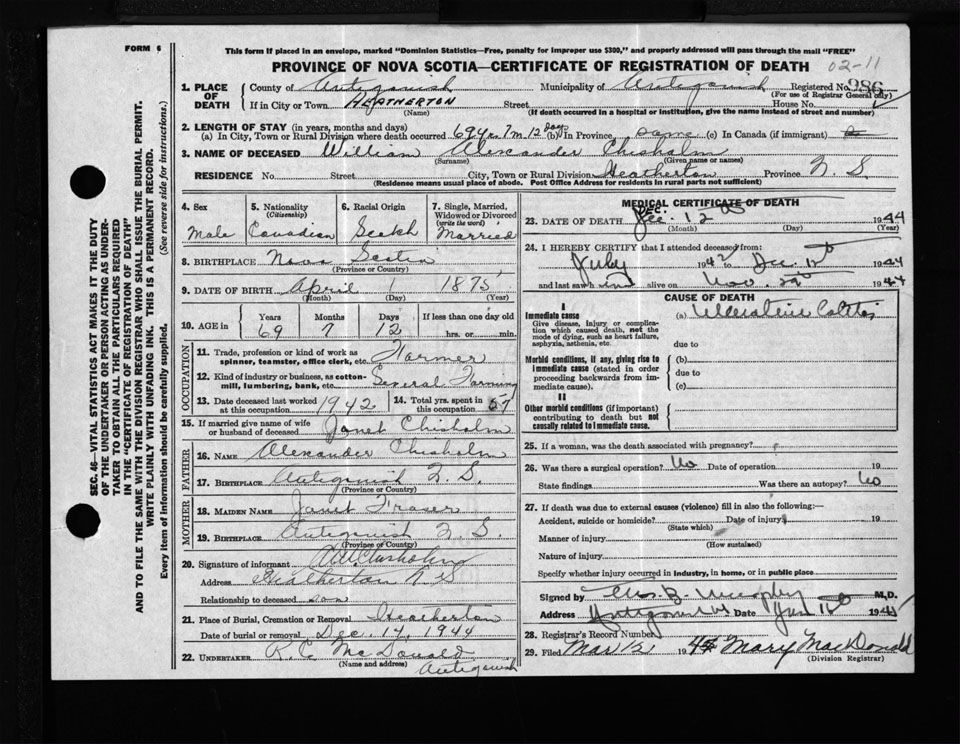 FORM 6
This form if placed in an envelope, marked "Dominion Statistics—Free, penalty for improper use $300," and properly addressed will pass through the mail "FREE"
PROVINCE OF NOVA SCOTIA—CERTIFICATE OF REGISTRATION OF DEATH
02-11
1. PLACE OF DEATH
County of Antigonish Municipality of Antigonish Registered No. 986
(For use of Registrar General only)
If in City or Town HEATHERTON Street House No.
(Name) (If death occurred in a hospital or institution, give the name instead of street and number)
2. LENGTH OF STAY (in years, months and days)
(a) In City, Town or Rural Division where death occurred 69 yrs 7 m. 12 Days (b) In Province same (c) In Canada (if immigrant)
3. NAME OF DECEASED William Alexander Chisholm
(Surname) (Given name or names)
RESIDENCE No. Street City, Town or Rural Division Heatherton Province N. S.
(Residence means usual place of abode. Post Office Address for residents in rural parts not sufficient)
4. Sex
Male
5. Nationality
(Citizenship)
Canadian
6. Racial Origin
Scotch
7. Single, Married, Widowed or Divorced
(write the word)
Married
8. BIRTHPLACE Nova Scotia
(Province or Country)
9. DATE OF BIRTH April 1 1875
(Month) (Day) (Year)
10. AGE in
Years Months Days If less than one day old
69 7 12 hrs. or min.
OCCUPATION
11. Trade, profession or kind of work as
spinner, teamster, office clerk, etc. Farmer
12. Kind of industry or business, as cotton-
mill, lumbering, bank, etc. General Farming
13. Date deceased last worked
at this occupation 1942
14. Total yrs. spent in
this occupation 57
15. If married give name of wife
or husband of deceased Janet Chisholm
FATHER
16. NAME Alexander Chisholm
17. BIRTHPLACE Antigonish N. S.
(Province or Country)
MOTHER
18. MAIDEN NAME Janet Fraser
19. BIRTHPLACE Antigonish N. S.
(Province or Country)
20. Signature of informant Chisholm
Address Heatherton N S
Relationship to deceased son
21. Place of Burial, Cremation or Removal Heatherton
Date of burial or removal Dec. 14, 1944
22. UNDERTAKER R. C. McDonald
(Name and address) Antigonish
MEDICAL CERTIFICATE OF DEATH
DEC.
23. DATE OF DEATH Dec. 12 1944
(Month) (Day) (Year)
24. I HEREBY CERTIFY that I attended deceased from:
July 1942 to Dec. 12 1944
and last saw him alive on Nov. 1944
CAUSE OF DEATH
I
Immediate cause
Give disease, injury or complica-
tion which caused death, not the
mode of dying, such as heart failure,
asphyxia, asthenia, etc.
(a) Ulcerative Colitis
due to
Morbid conditions, if any, giving rise to
immediate cause (stated in order
proceeding backwards from im-
mediate cause).
(b)
due to
(c)
II
Other morbid conditions (if important)
contributing to death but not
causally related to immediate cause.
25. If a woman, was the death associated with pregnancy?
26. Was there a surgical operation? No Date of operation 19
State findings Was there an autopsy? No
27. If death was due to external causes (violence) fill in also the following:—
Accident, suicide or homicide? Date of injury 19
(State which)
Manner of injury
(How sustained)
Nature of injury
Specify whether injury occurred in industry, in home, or in public place
Signed by B. Murphy M.D.
Address Antigonish Date
28. Registrar's Record Number
29. Filed Mar 12 1945 Mary MacDonald
(Division Registrar)
SEC. 46—VITAL STATISTICS ACT MAKES IT THE DUTY
OF THE UNDERTAKER OR PERSON ACTING AS UNDER-
TAKER TO OBTAIN ALL THE PARTICULARS REQUIRED
IN THE "CERTIFICATE OF REGISTRATION OF DEATH"
AND TO FILE THE SAME WITH THE DIVISION REGISTRAR WHO SHALL ISSUE THE BURIAL PERMIT.
WRITE PLAINLY WITH UNFADING INK. THIS IS A PERMANENT RECORD.
Every item of information should be carefully supplied. (See reverse side for instructions.)